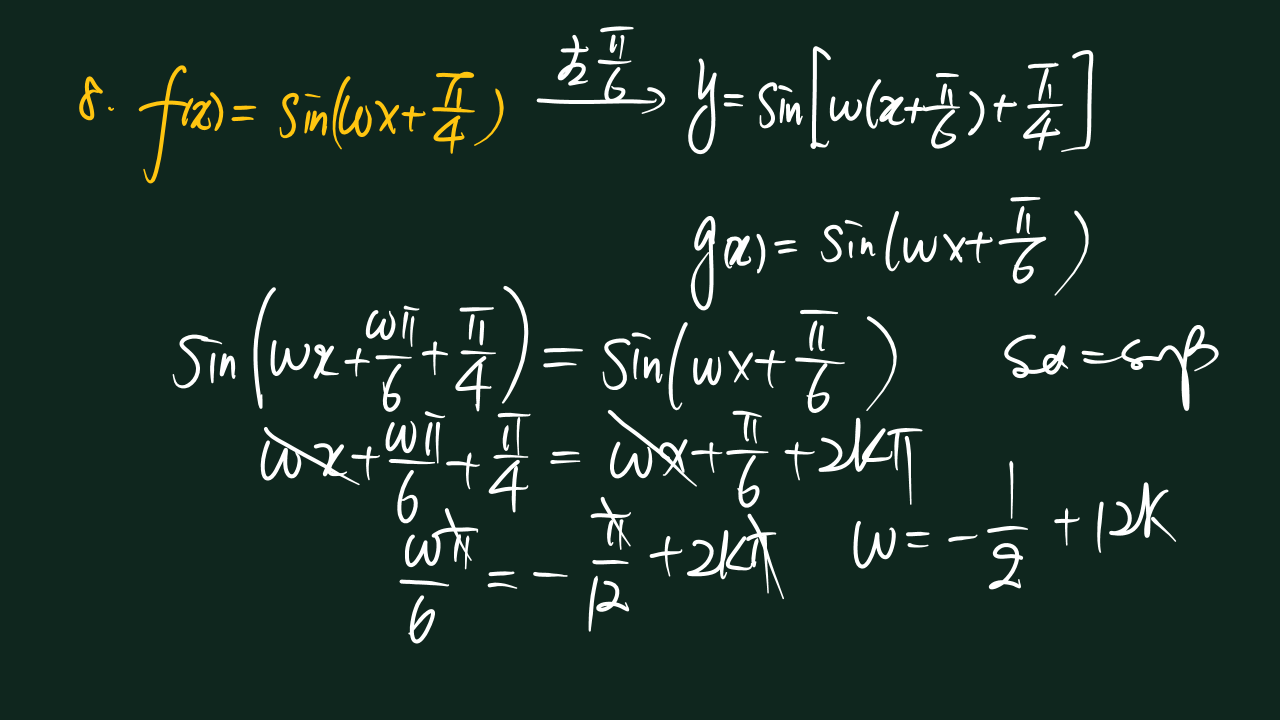 8. f(x) = sin(ωx + π/4) 左 π/6 → y = sin[ω(x + π/6) + π/4]
g(x) = sin(ωx + π/6)
sin(ωx + ωπ/6 + π/4) = sin(ωx + π/6) sα = sinβ
ωx + ωπ/6 + π/4 = ωx + π/6 + 2kπ
ωπ/6 = -π/12 + 2kπ ω = -1/2 + 12k